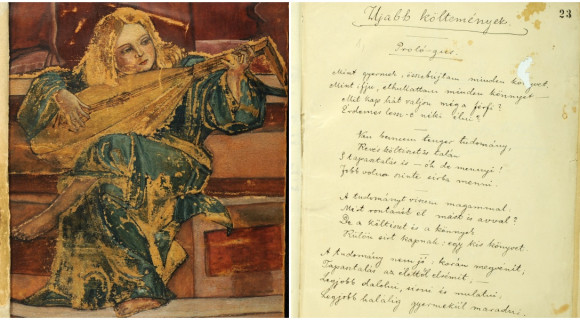 Ujabb költemények.
23
Prológus.
Mint gyermek, összebujtam minden könyvet.
Mint ifju, elhullattam minden könnyet —
Mit kap hát valjon még a férfi?
Érdemes lesz-e néki élni?
Van bennem tenger tudomány,
Kevés költészet talán
S tapasztalás is — óh de mennyi!
Jobb volna szinte sirba menni.
A tudományt viszem magammal.
Mért rontanék el mást is avval?
De a költészet és a könnyek
Külön sirt kapnak: egy kis könyvet.
A tudomány nem jó: korán megvénit,
Tapasztalás az élettől elrémit, —
Legjobb dalolni, sirni és mulatni,
Legjobb halálig gyermekül maradni.